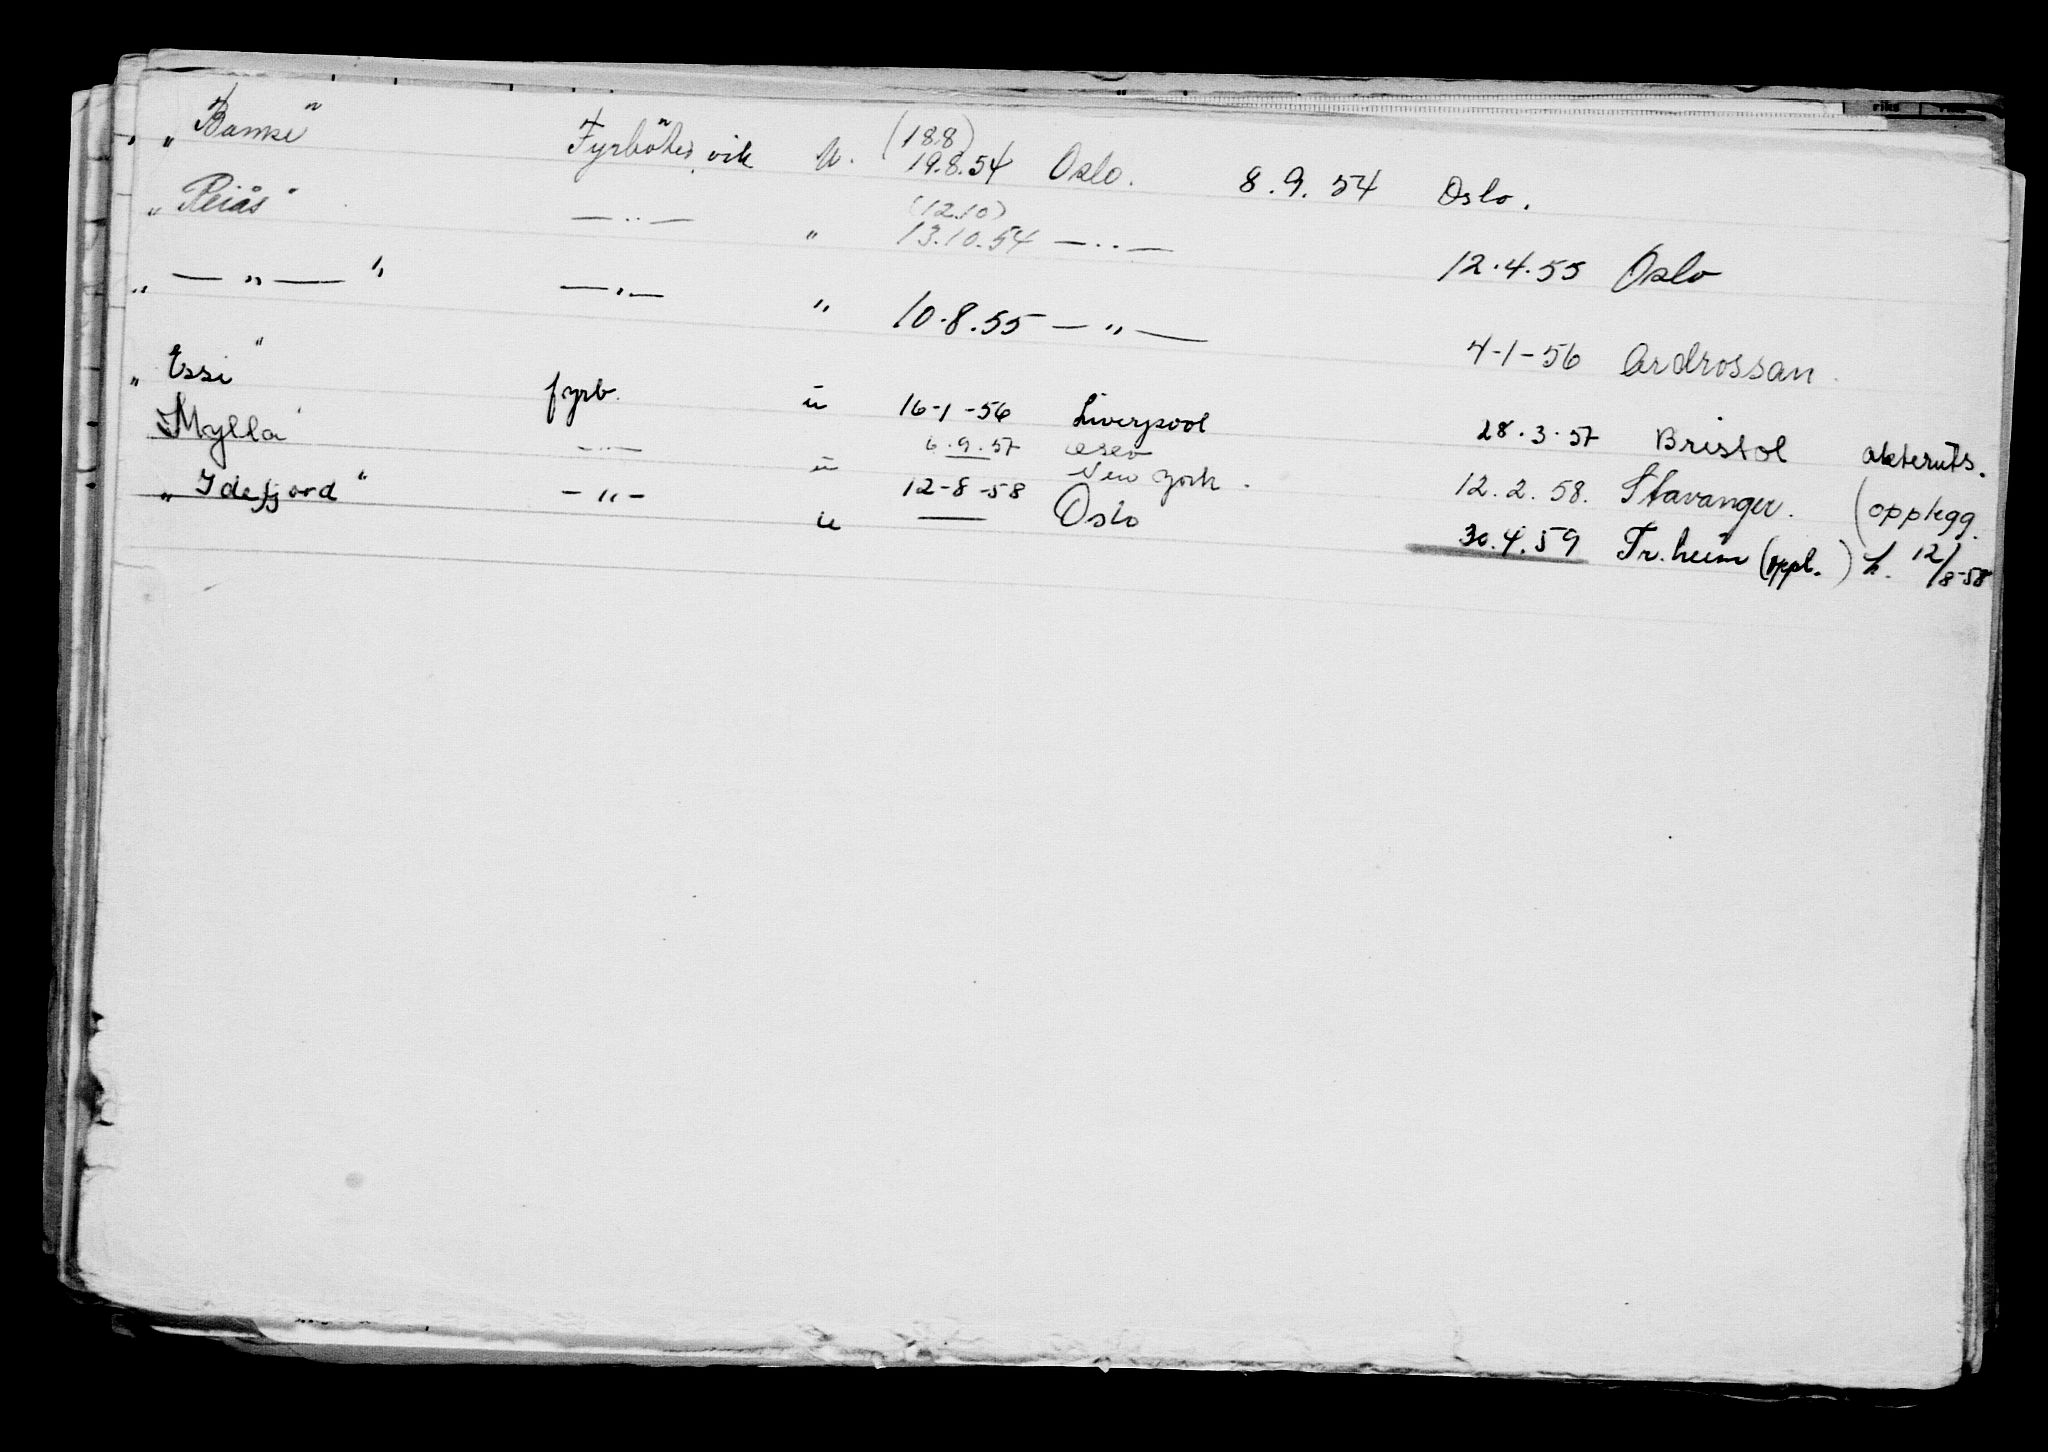 „ Bamse " Fyrböter vik u. (18.8) 19.8.54 Oslo. 8.9.54 Oslo.
„ Reiås " — „ — " (12.10) 13.10.54 — „ — 12.4.55 Oslo
„ — „ — " — „ — " 10.8.55 — „ — 4-1-56 Ardrossan.
„ Essi " fyrb. u 16-1-56 Liverpool 28.3.57 Bristol akteruts.
Mylla — „ — u 6.9.57 New York. 12.2.58. Stavanger. (opplegg.
„ Idefjord " — „ — u 12-8-58 Oslo 30.4.59 Tr.heim (oppl.) 12/8-58